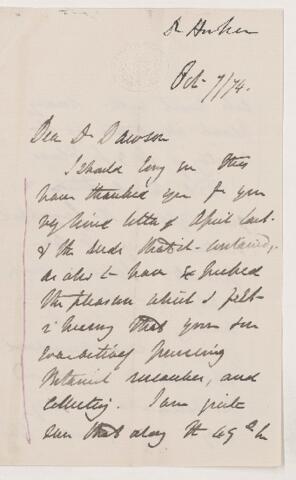 Dr Hooker
Oct 7/74.
Dear Dr Dawson
I should long ere this
have thanked you for your
very kind letter of April last
& the seeds that it contained,
as also to have expressed
the pleasure which I felt
in hearing that your son
was actively pursuing
Botanical researches, and
collecting. I am quite
sure that along the 49th